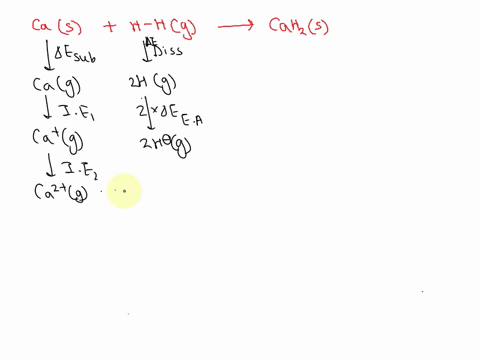 Ca (s) + H-H(g) ⟶ CaH₂(s)
↓ΔE sub ↓ΔE Diss
Ca(g) 2H (g)
↓ I.E₁ 2×ΔE E.A
Ca⁺(g) 2H⊖(g)
↓ I.E₂
Ca²⁺(g)